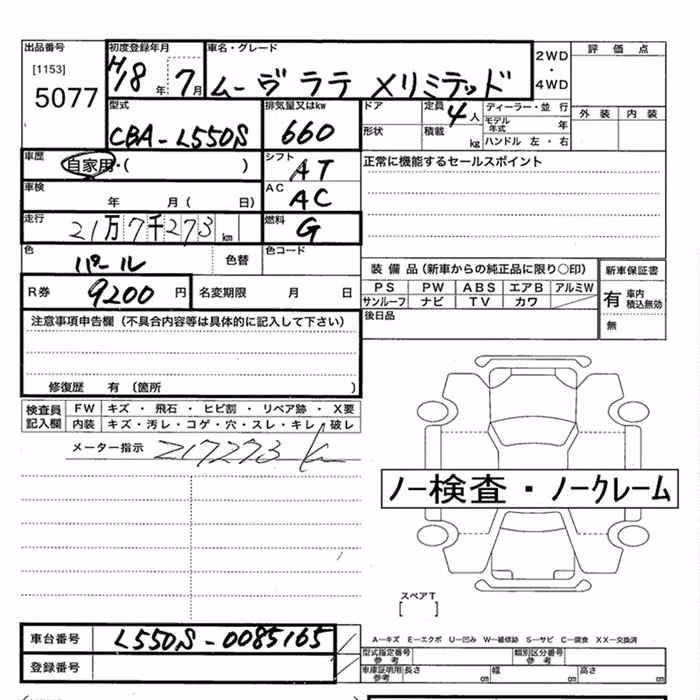 出品番号 [1153] 5077
初度登録年月 H18年 7月
車名・グレード ムーヴ ラテ メリミテッド
2WD・4WD
評価点
外装 内装
型式 CBA-L550S
排気量又はkw 660
ドア 形状
定員 4人 積載 kg
ディーラー・並行
モデル年式 年
ハンドル 左・右
車歴 自家用・( )
シフト AT
正常に機能するセールスポイント
車検 年 月( 日)
AC AC
走行 21万7千273km
燃料 G
色 パール 色替
色コード
R券 9200円
名変期限 月 日
装備品(新車からの純正品に限り○印)
PS PW ABS エアB アルミW
サンルーフ ナビ TV カワ
新車保証書
有 車内積込無効
無
後日品
注意事項申告欄(不具合内容等は具体的に記入して下さい)
修復歴 有(箇所 )
検査員記入欄
FW キズ・飛石・ヒビ割・リペア跡・X要
内装 キズ・汚レ・コゲ・穴・スレ・キレ・破レ
メーター指示 217273 k
ノー検査・ノークレーム
スペアT
[ ]
車台番号 L550S-0085165
登録番号
A―キズ E―エクボ U―凹み W―補修跡 S―サビ C―腐食 XX―交換済
型式指定番号 参考
類別区分番号 参考
車庫証明用 参考 長さ cm 幅 cm 高さ cm